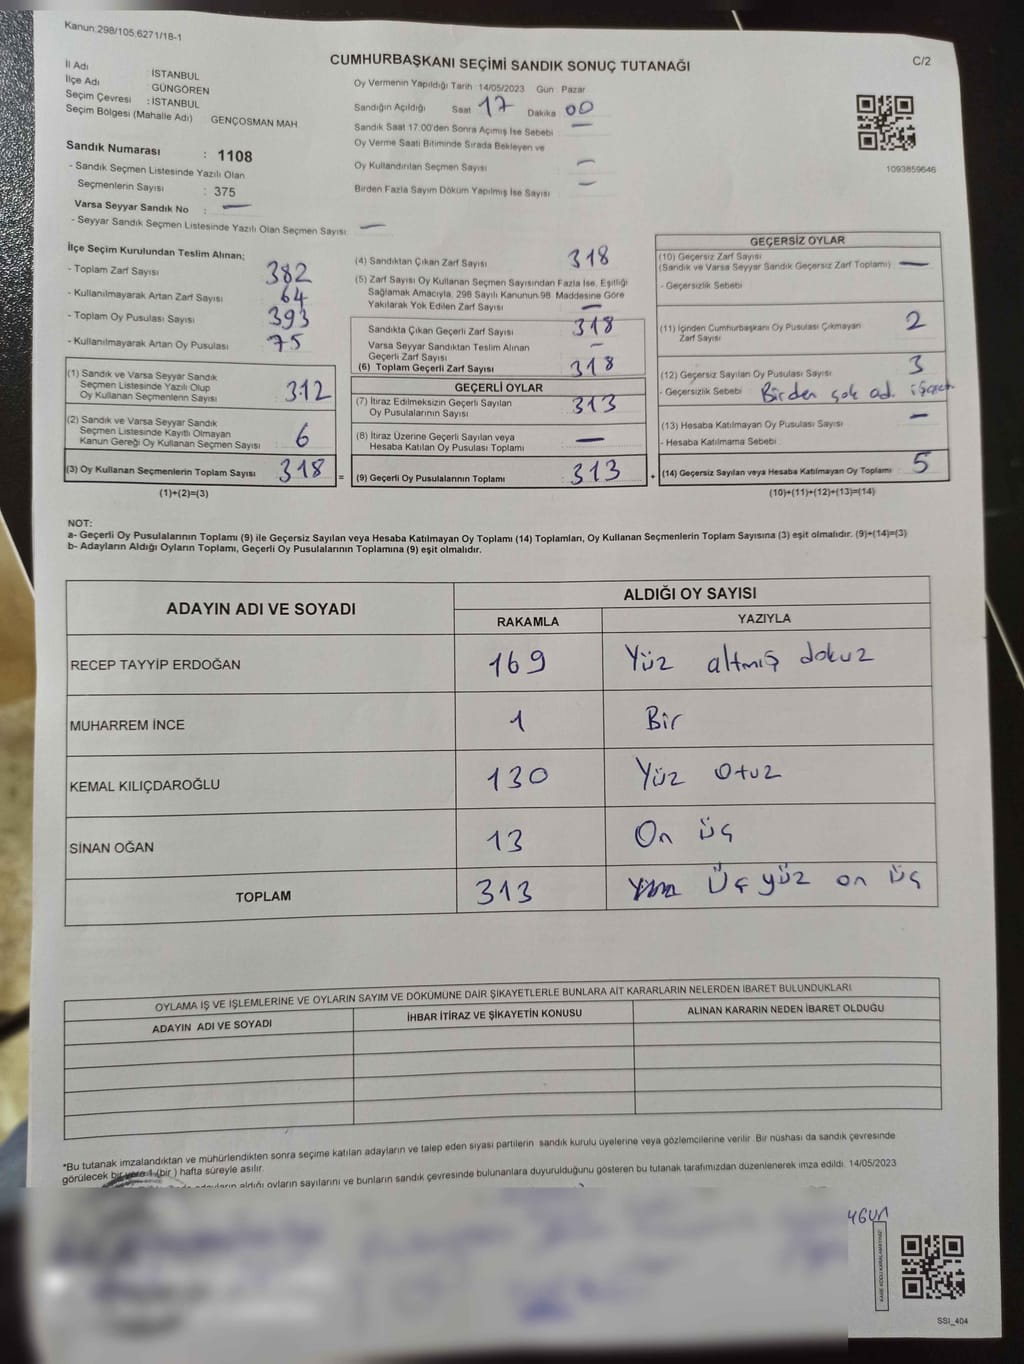 Kanun:298/105;6271/18-1
CUMHURBAŞKANI SEÇİMİ SANDIK SONUÇ TUTANAĞI
C/2
İl Adı : İSTANBUL
İlçe Adı : GÜNGÖREN
Seçim Çevresi : İSTANBUL
Seçim Bölgesi (Mahalle Adı) GENÇOSMAN MAH
Sandık Numarası : 1108
- Sandık Seçmen Listesinde Yazılı Olan
Seçmenlerin Sayısı : 375
Varsa Seyyar Sandık No : —
- Seyyar Sandık Seçmen Listesinde Yazılı Olan Seçmen Sayısı: —
Oy Vermenin Yapıldığı Tarih 14/05/2023 Gün Pazar
Sandığın Açıldığı Saat 17 Dakika 00
Sandık Saat 17.00'den Sonra Açımış İse Sebebi —
Oy Verme Saati Bitiminde Sırada Bekleyen ve
Oy Kullandırılan Seçmen Sayısı —
Birden Fazla Sayım Döküm Yapılmış İse Sayısı —
1093859646
İlçe Seçim Kurulundan Teslim Alınan;
- Toplam Zarf Sayısı 382
- Kullanılmayarak Artan Zarf Sayısı 64
- Toplam Oy Pusulası Sayısı 393
- Kullanılmayarak Artan Oy Pusulası 75
(1) Sandık ve Varsa Seyyar Sandık
Seçmen Listesinde Yazılı Olup
Oy Kullanan Seçmenlerin Sayısı 312
(2) Sandık ve Varsa Seyyar Sandık
Seçmen Listesinde Kayıtlı Olmayan
Kanun Gereği Oy Kullanan Seçmen Sayısı 6
(3) Oy Kullanan Seçmenlerin Toplam Sayısı 318 =
(1)+(2)=(3)
(4) Sandıktan Çıkan Zarf Sayısı 318
(5) Zarf Sayısı Oy Kullanan Seçmen Sayısından Fazla İse, Eşitliği
Sağlamak Amacıyla, 298 Sayılı Kanunun 98. Maddesine Göre
Yakılarak Yok Edilen Zarf Sayısı —
Sandıkta Çıkan Geçerli Zarf Sayısı 318
Varsa Seyyar Sandıktan Teslim Alınan
Geçerli Zarf Sayısı —
(6) Toplam Geçerli Zarf Sayısı 318
GEÇERLİ OYLAR
(7) İtiraz Edilmeksizin Geçerli Sayılan
Oy Pusulalarının Sayısı 313
(8) İtiraz Üzerine Geçerli Sayılan veya
Hesaba Katılan Oy Pusulası Toplamı —
(9) Geçerli Oy Pusulalarının Toplamı 313 +
GEÇERSİZ OYLAR
(10) Geçersiz Zarf Sayısı
(Sandık ve Varsa Seyyar Sandık Geçersiz Zarf Toplamı) —
- Geçersizlik Sebebi
(11) İçinden Cumhurbaşkanı Oy Pusulası Çıkmayan
Zarf Sayısı 2
(12) Geçersiz Sayılan Oy Pusulası Sayısı 3
- Geçersizlik Sebebi Birden çok ad. işaret.
(13) Hesaba Katılmayan Oy Pusulası Sayısı —
- Hesaba Katılmama Sebebi :
(14) Geçersiz Sayılan veya Hesaba Katılmayan Oy Toplamı 5
(10)+(11)+(12)+(13)=(14)
NOT:
a- Geçerli Oy Pusulalarının Toplamı (9) ile Geçersiz Sayılan veya Hesaba Katılmayan Oy Toplamı (14) Toplamları, Oy Kullanan Seçmenlerin Toplam Sayısına (3) eşit olmalıdır. (9)+(14)=(3)
b- Adayların Aldığı Oyların Toplamı, Geçerli Oy Pusulalarının Toplamına (9) eşit olmalıdır.
ADAYIN ADI VE SOYADI ALDIĞI OY SAYISI
RAKAMLA YAZIYLA
RECEP TAYYİP ERDOĞAN 169 Yüz altmış dokuz
MUHARREM İNCE 1 Bir
KEMAL KILIÇDAROĞLU 130 Yüz Otuz
SİNAN OĞAN 13 On üç
TOPLAM 313 Üç yüz on üç
OYLAMA İŞ VE İŞLEMLERİNE VE OYLARIN SAYIM VE DÖKÜMÜNE DAİR ŞİKAYETLERLE BUNLARA AİT KARARLARIN NELERDEN İBARET BULUNDUKLARI
ADAYIN ADI VE SOYADI İHBAR İTİRAZ VE ŞİKAYETİN KONUSU ALINAN KARARIN NEDEN İBARET OLDUĞU
*Bu tutanak imzalandıktan ve mühürlendikten sonra seçime katılan adayların ve talep eden siyasi partilerin sandık kurulu üyelerine veya gözlemcilerine verilir. Bir nüshası da sandık çevresinde
görülecek bir yere 1 (bir ) hafta süreyle asılır.
adayların aldığı oyların sayılarını ve bunların sandık çevresinde bulunanlara duyurulduğunu gösteren bu tutanak tarafımızdan düzenlenerek imza edildi. 14/05/2023
SSİ_404